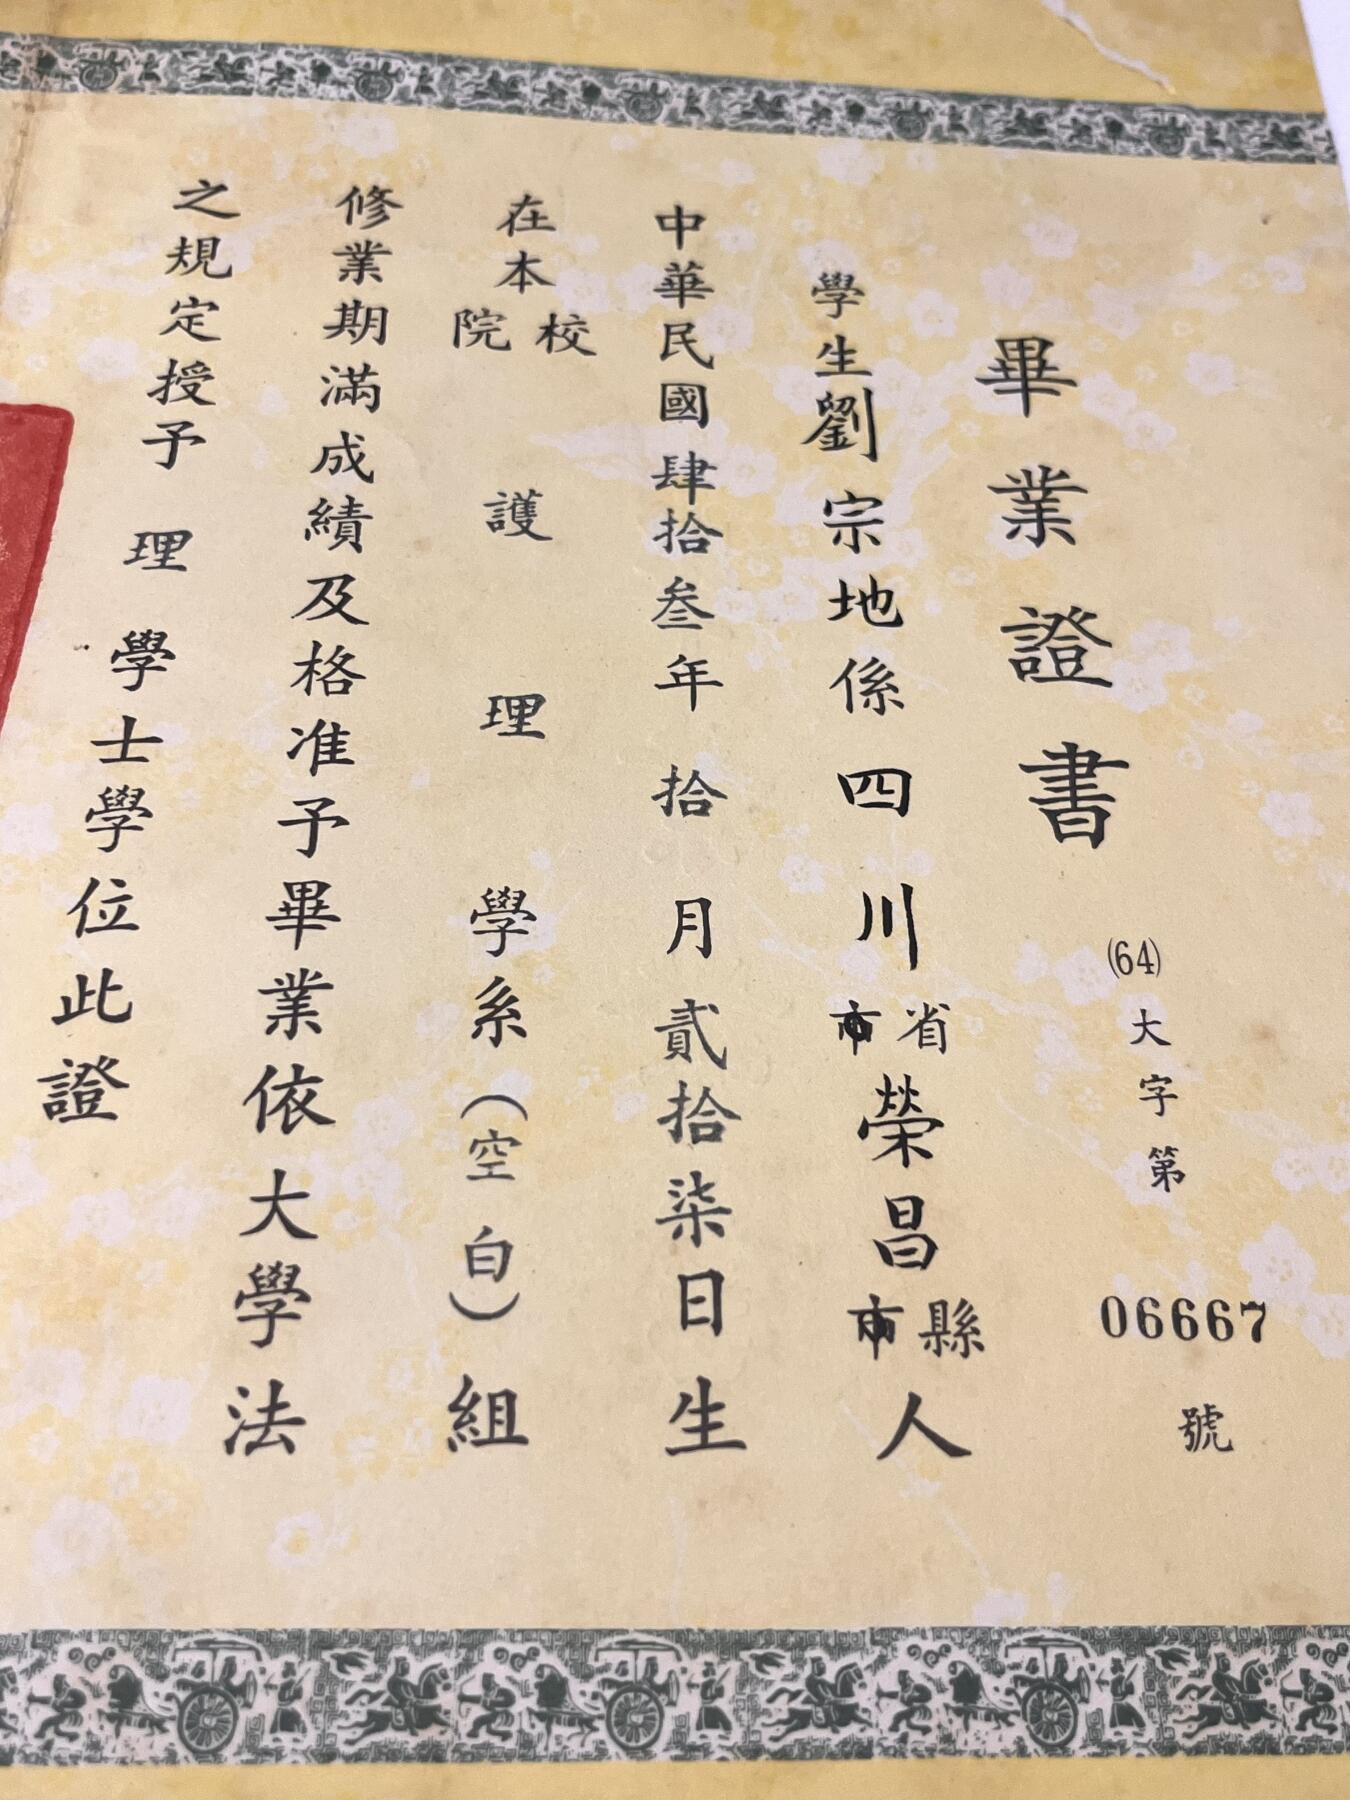 畢業證書
(64)大字第06667號
學生劉宗地係四川省市榮昌縣市人
中華民國肆拾叁年拾月貳拾柒日生
在本校院護理學系(空白)組
修業期滿成績及格准予畢業依大學法
之規定授予理學士學位此證